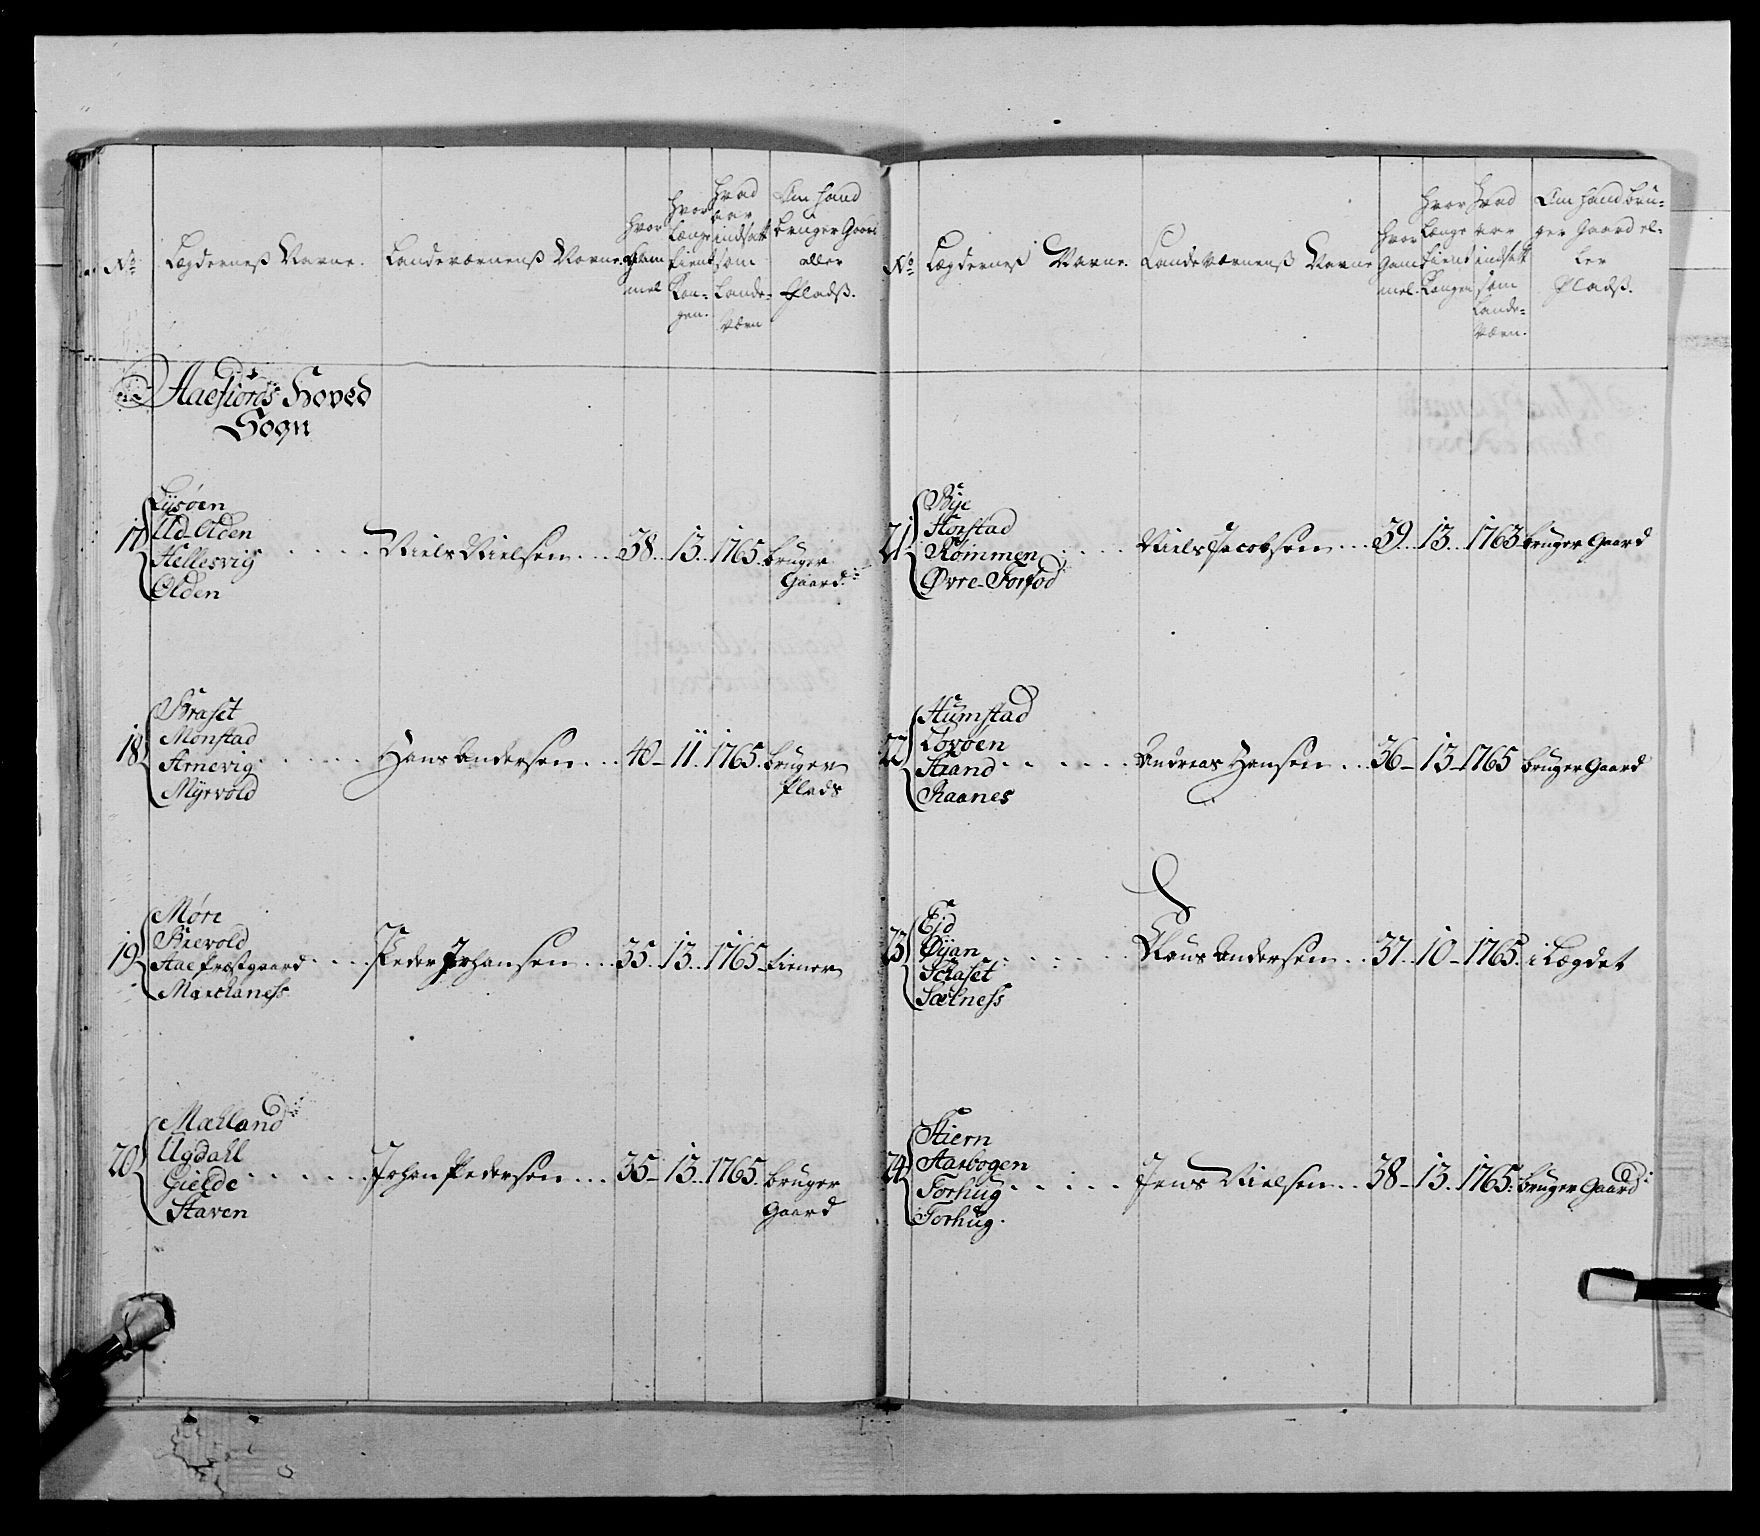 No
Lægdernes Navne.
Landeværnens Navne.
hvor
gam
mel
hvor
længe
tient
Kon-
gen.
hvad
aar
indsatt
som
Lande-
værn
Om hand
bruger Gaard
eller
Pladß.
Aaefiords Hoved
Sogn
17
Lysøen
Ud-Olden
Hellesvig
Olden
Niels Nielsen
38
13
1765
bruger
Gaard
18
Braset
Monstad
Arnevig
Myrvold
Hans Andersen
40
11
1765
bruger
Plads
19
Møre
Bievold
Aae Præstgaard
Marchaness
Peder Johansen
35
13
1765
tiener
20
Mælland
Ugdahl
Gielde
Staven
Johan Pedersen
35
13
1765
bruger
Gaard
No
Lægdernes Navne.
Landeværnens Navne
hvor
gam
mel
hvor
længe
tient
Kongen
hvad
aar
indsatt
som
Lande-
værn.
Om hand bru-
ger Gaard el-
ler
Pladß.
21
Rye
Horstad
Rømmen
Øvre-Forfod
Niels Jacobsen
39
13
1763
bruger Gaard
22
Humstad
Tovøen
Strand
Raanes
Andreas Hansen
36
13
1765
bruger Gaard
23
Eid
Øyan
Scraset
Sælness
Claus Andersen
37
10
1765
i Lægdet
24
Stiern
Aarbogen
Forhug
Forhug
Jens Nielsen
38
13
1765
bruger Gaard